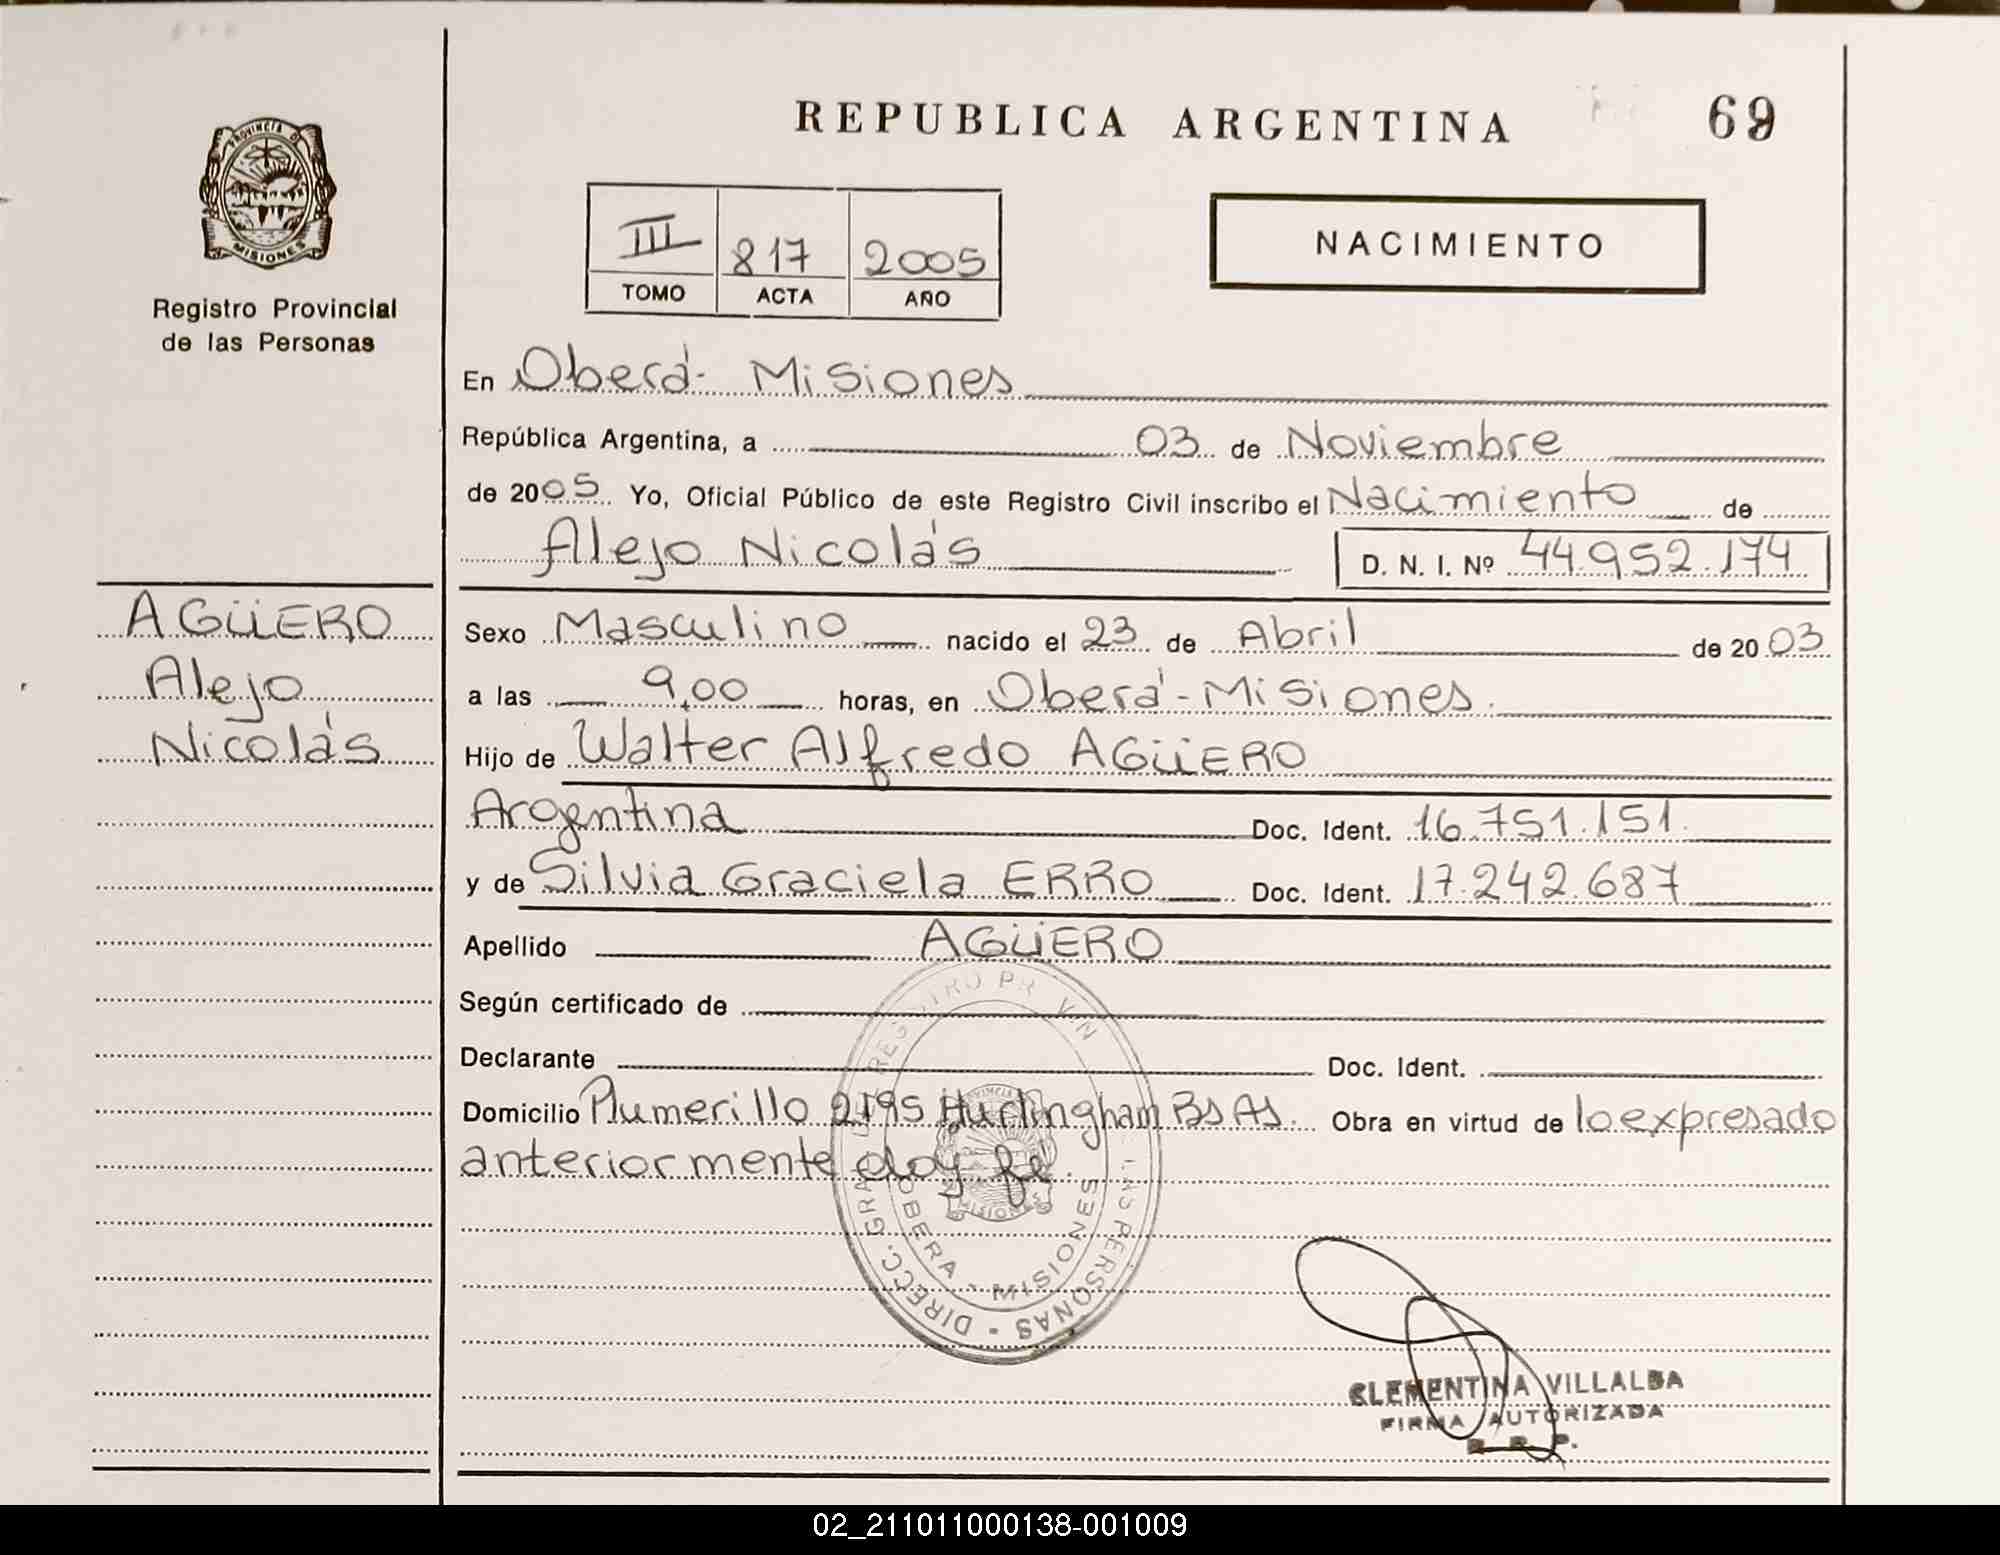 REPUBLICA ARGENTINA
69
PROVINCIA DE
MISIONES
Registro Provincial
de las Personas
III 817 2005
TOMO ACTA AÑO
NACIMIENTO
En Oberá - Misiones
República Argentina, a 03 de Noviembre
de 2005 Yo, Oficial Público de este Registro Civil inscribo el Nacimiento de
Alejo Nicolás D. N. I. Nº 44.952.174
AGÜERO
Alejo
Nicolás
Sexo Masculino nacido el 23 de Abril de 2003
a las 9,00 horas, en Oberá - Misiones.
Hijo de Walter Alfredo AGÜERO
Argentina Doc. Ident. 16.751.151.
y de Silvia Graciela ERRO Doc. Ident. 17.242.687
Apellido AGÜERO
Según certificado de
Declarante Doc. Ident.
Domicilio Plumerillo 2195 Hurlingham Bs As. Obra en virtud de lo expresado
anteriormente doy fe.
DIRECC. GRAL. REGISTRO PROVIN LAS PERSONAS
OBERA - MISIONES
CLEMENTINA VILLALBA
FIRMA AUTORIZADA
R. P.
02_211011000138-001009